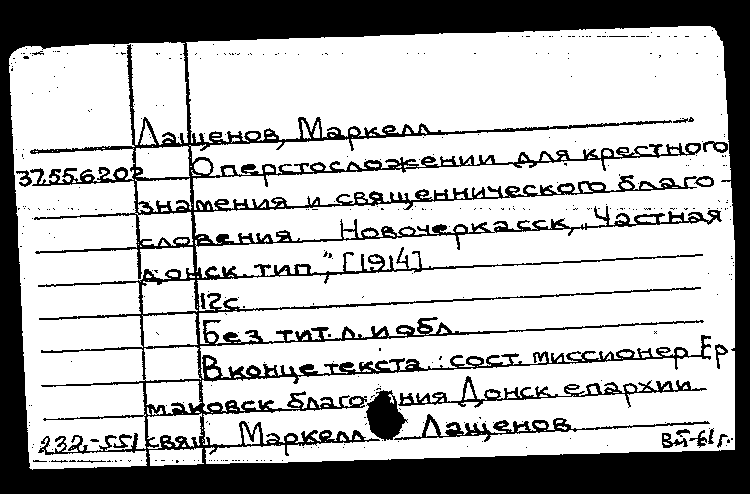 Лащенов, Маркелл.
37.55.6.202 Оперстосложении для крестного
знамения и священнического благо-
словения. Новочеркасск, „Частная
донск. тип", [1914].
12с.
Без тит. л. и обл.
В конце текста: сост. миссионер Ер-
маковск благо ния Донск. епархии
232,-551 свящ, Маркелл Лащенов.